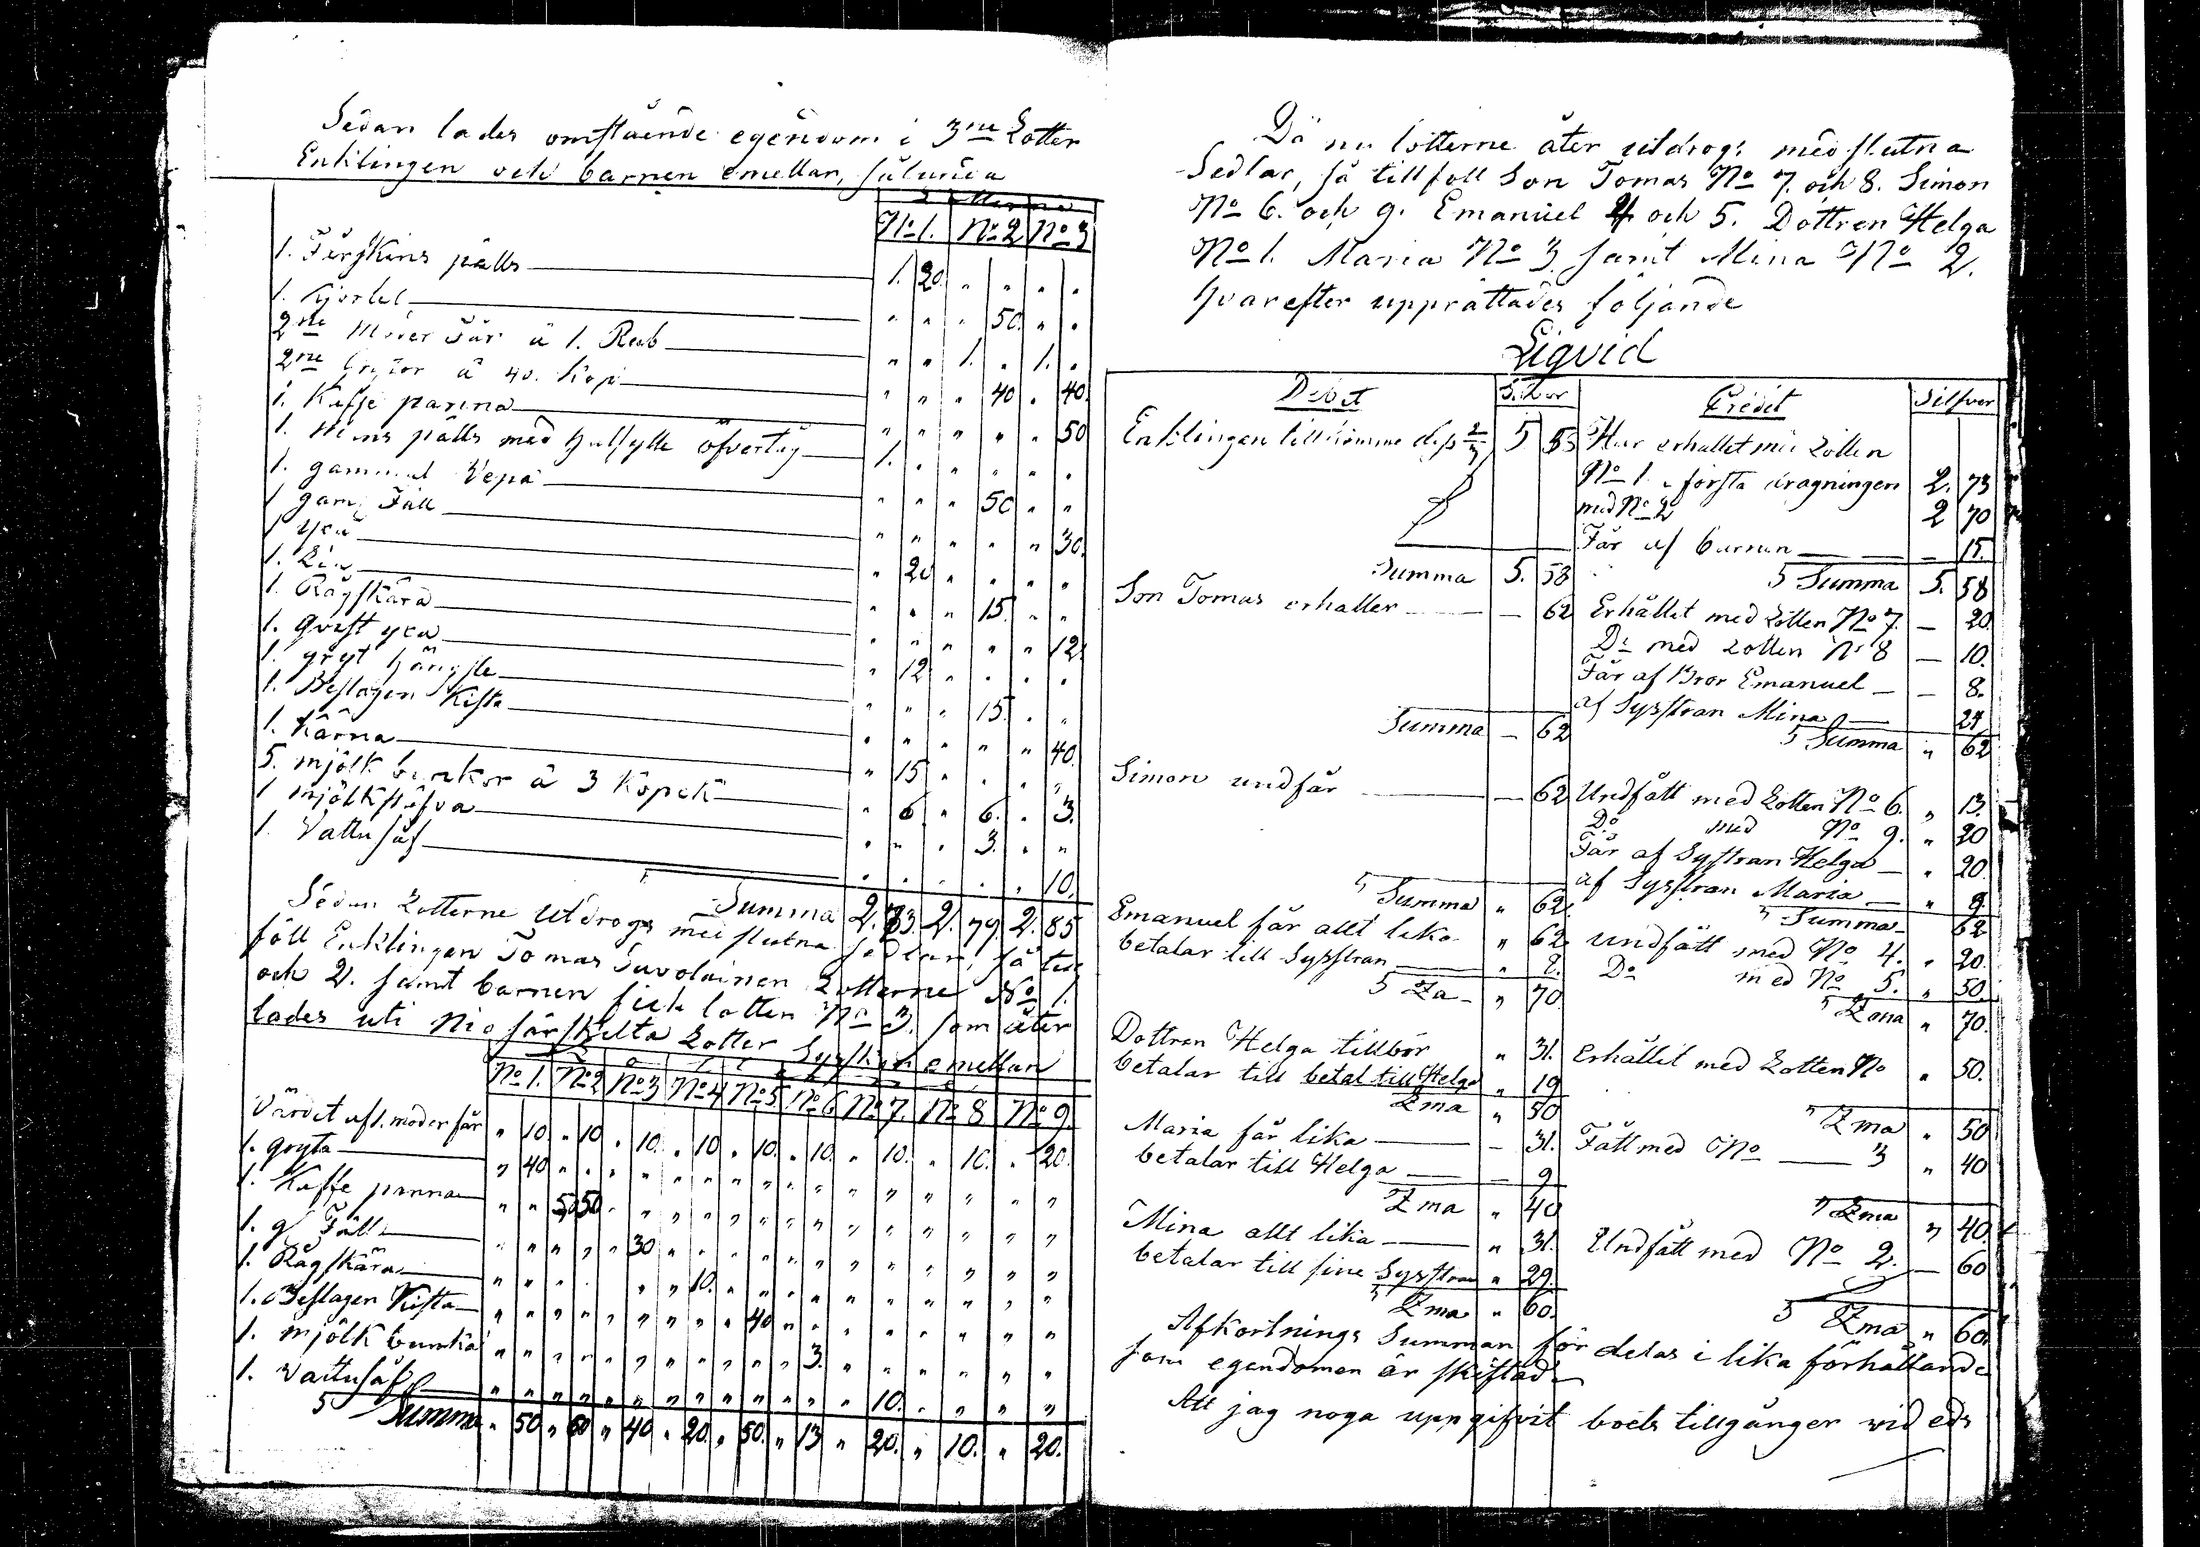 Sedan lades omstående egendom i 3ne Lotter
Enklingen och barnen emellan, sålunda
Lotterna
No 1. No 2 No 3
1. Fårskins pälls 1. 20. " " " "
1. Kjortel " " " 50. " "
2ne Moder Får à 1. Rub " " 1. " 1. "
2ne Grytor à 40. Kop " " " 40 " 40.
1. Kaffe panna " " " " " 50
1. pälls med öfvertyg 1. " " " " "
1. gammal Vepa " " " 50 " "
1 gam. Fäll " " " " " 30.
1 yxa " 20 " " " "
1. Lia " " " 15. " "
1. Rågskära " " " " " 12.
1. Qvist yxa " 12 " " " "
1. gryt hängsle " " " 15. " "
1. Beslagen Kista " " " " " 40.
1. Kärna " 15 " " " "
5. mjölk bunkor à 3 Kopek " 6 " 6. " 3.
1 mjölkstäfva " " " 3. " "
1. Vattu såf " " " " " 10.
Summa 2. 73. 2. 79. 2. 85
Sedan Lotterne utdrogs med slutna Sedlar, så till
föll Enklingen Tomas Savolainen Lotterne No 1.
och 2. samt barnen fick lotten No 3. som åter
lades uti Nio särskilta Lotter Sysskon emellan
No 1. No 2 No 3 No 4 No 5 No 6 No 7. No 8 No 9.
Värdet af 1. moder får " 10. " 10 " 10. " 10 " 10. " 10. " 10. " 10. " 20.
1. gryta " 40 " " " " " " " " " " " " " " " "
1. Kaffe panna " " " 50 " " " " " " " " " " " " " "
1. g Fäll " " " " " 30 " " " " " " " " " " " "
1. Rågskära " " " " " " " 10. " " " " " " " " " "
1. Beslagen Kista " " " " " " " " " 40 " " " " " " " "
1. mjölk bunka " " " " " " " " " " " 3. " " " " " "
1. Vattusåf " " " " " " " " " " " " " 10. " " " "
Summa " 50 " 60 " 40 " 20. " 50. " 13 " 20. " 10. " 20.
Då nu lotterne åter utdrogs med slutna
Sedlar, så tillföll Son Tomas No 7. och 8. Simon
No 6. och 9. Emanuel 4 och 5. Dottren Helga
No 1. Maria No 3. samt Mina No 2.
hvarefter upprättades följande
Liqvid
Debet Silver Credit Silfver
Enklingen tillkomme dess 2/3 5 58 Har erhållet med Lotten
No 1. i första dragningen 2. 73
med No 2 2 70
Får af barnen — 15.
Summa 5. 58 Summa 5. 58
Son Tomas erhaller — 62 Erhållit med Lotten No 7. — 20.
Do med Lotten No 8 — 10.
Får af Bror Emanuel — 8.
af Sysstran Mina 24
Summa — 62 Summa " 62
Simon undfår — 62 Undfått med Lotten No 6. " 13.
Do med No 9. " 20
Får af Systran Helga " 20.
af Sysstran Maria " 9.
Summa " 62. Summa 62
Emanuel får allt lika " 62 undfått med No 4. " 20.
betalar till Sysstran " 8. Do med No 5. " 50.
Za " 70. Zma " 70.
Dottren Helga tillbör " 31. Erhållit med Lotten No " 50.
betalar till betal till Helga " 19
Zma " 50 Zma " 50
Maria får lika — 31. Fått med No 3 " 40
betalar till Helga — 9
Zma " 40 Zma " 40
Mina allt lika " 31. Undfått med No 2. — 60
betalar till sine Sysstran " 29.
Zma " 60. Zma " 60.
Afkortnings Summan för delas i lika förhållande
som egendomen är skiftad
Att jag noga uppgifvit boets tillgånger wid eds